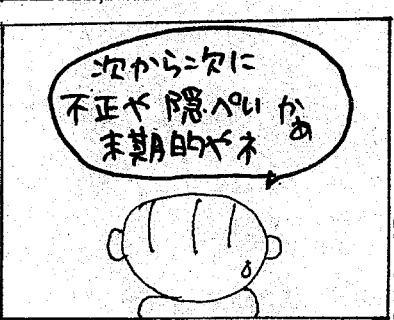 次から次に
不正や 隠ぺい かぁ
末期的やネ